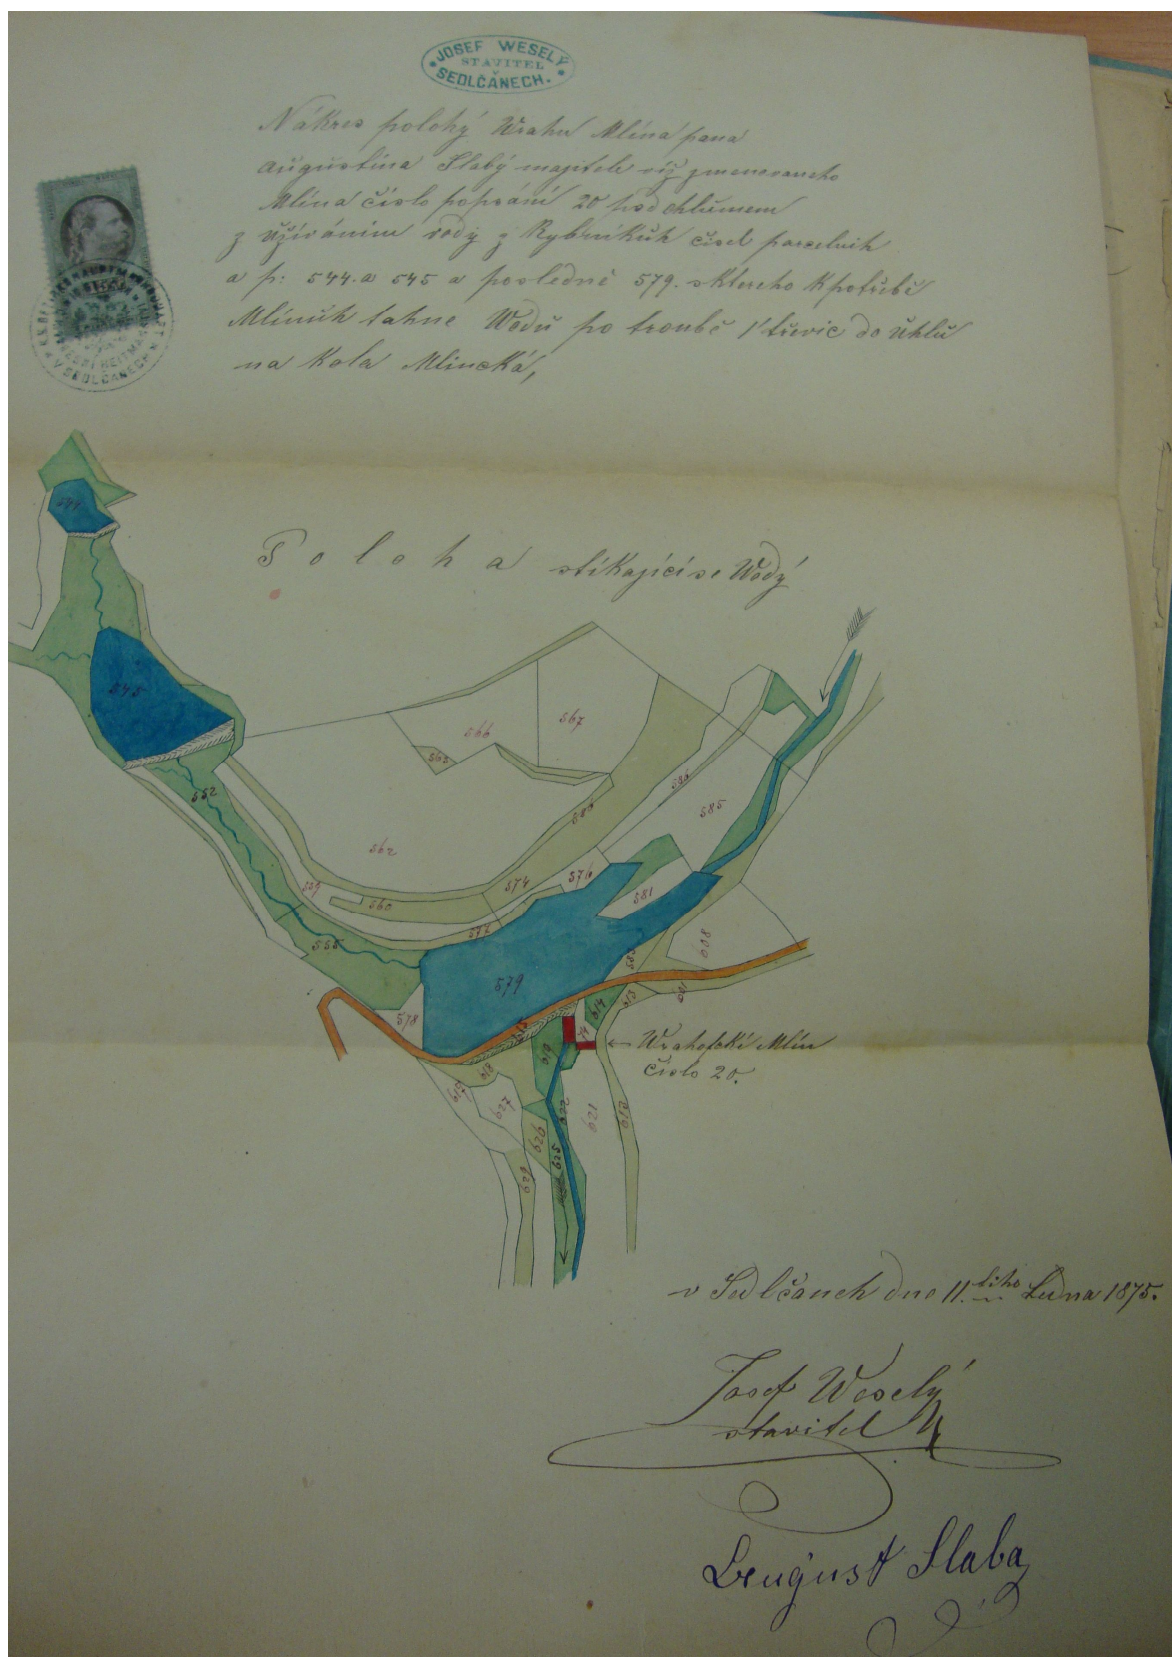 JOSEF WESELÝ
STAVITEL
SEDLČANECH.
Nákres polohy Wrahu Mlína pana
Augustina Slabý majitele víž jmenovaneho
Mlína číslo popsání 20 pod chlumem
z užíváním vody z Rybníkůh čisel parcelnih
a p: 544. a 545 a posledně 579. skterého kpotřebě
Mlínůh tahne Wodu po troubě 1' třevic do úhlu
na Kola Mlincká,
544
Poloha stíkající se Wodý
545
566
567
563
552
586
596
585
562
559
560
574
576
581
577
555
579
583
608
578
615
614
613
601
74
Wrahofské Mlín
číslo 20.
619
618
617
627
622
621
612
626
625
629
v Sedlčanech dne 11.tiho Ledna 1875.
Josef Weselý
stavitel
August Slaba